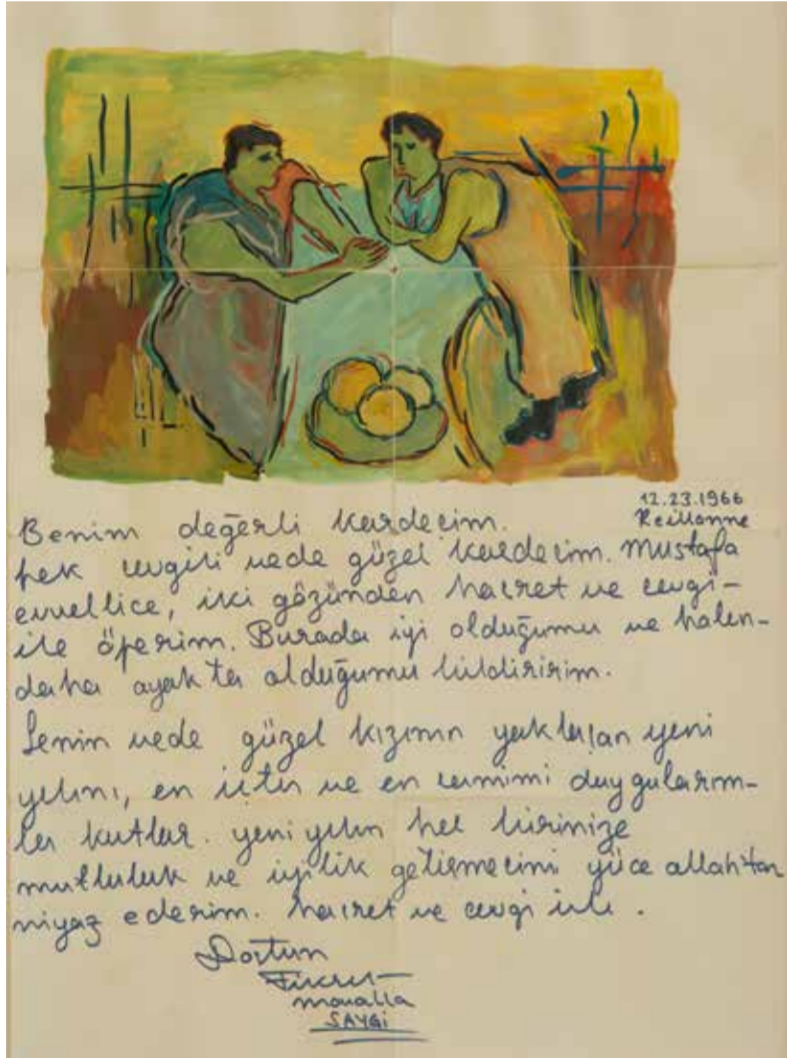 12.23.1966
Reillanne
Benim değerli kardeşim.
pek sevgili vede güzel kardeşim. Mustafa
evvellice, iki gözünden hasret ve sevgi-
ile öperim. Burada iyi olduğumu ve halen-
daha ayakta olduğumu bildiririm.
Senin vede güzel kızının yaklaşan yeni
yılını, en içten ve en samimi duygularım-
la kutlar. yeni yılın her birinize
mutluluk ve iyilik getirmesini yüce allahtan
niyaz ederim. hasret ve sevgi ile.
Dostun
Fikret
moualla
SAYGI